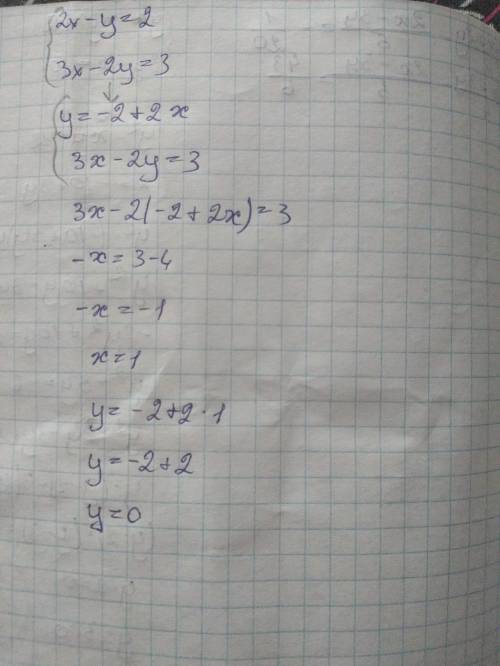 2x-y=2
3x-2y=3
y=-2+2x
3x-2y=3
3x-2(-2+2x)=3
-x=3-4
-x=-1
x=1
y=-2+2·1
y=-2+2
y=0